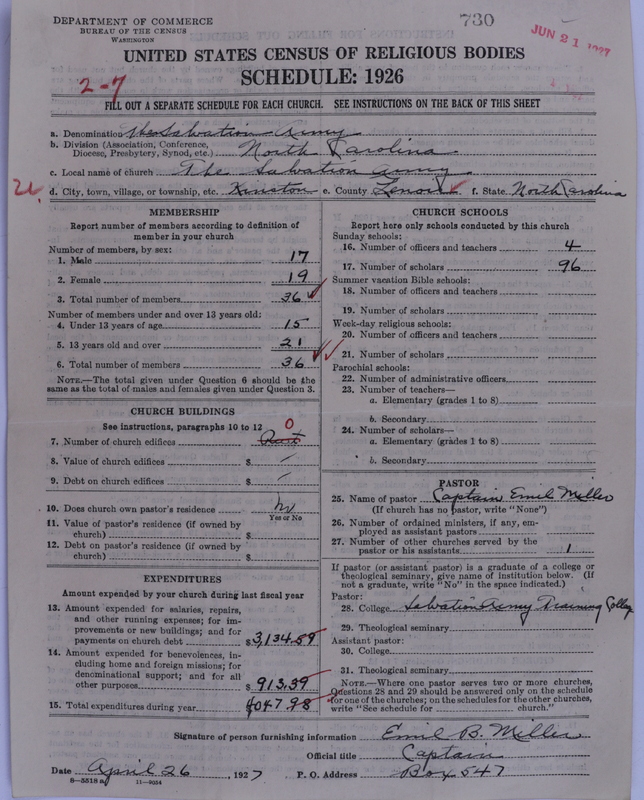 DEPARTMENT OF COMMERCE
BUREAU OF THE CENSUS
WASHINGTON
730
JUN 21 1927
UNITED STATES CENSUS OF RELIGIOUS BODIES
SCHEDULE: 1926
2-7
FILL OUT A SEPARATE SCHEDULE FOR EACH CHURCH. SEE INSTRUCTIONS ON THE BACK OF THIS SHEET
a. Denomination The Salvation Army
b. Division (Association, Conference, Diocese, Presbytery, Synod, etc.) North Carolina
c. Local name of church The Salvation Army
d. City, town, village, or township, etc. Kinston e. County Lenoir f. State North Carolina
MEMBERSHIP
Report number of members according to definition of member in your church
Number of members, by sex:
1. Male 17
2. Female 19
3. Total number of members 36
Number of members under and over 13 years old:
4. Under 13 years of age 15
5. 13 years old and over 21
6. Total number of members 36
NOTE.—The total given under Question 6 should be the same as the total of males and females given under Question 3.
CHURCH BUILDINGS
See instructions, paragraphs 10 to 12
7. Number of church edifices 0
8. Value of church edifices $ —
9. Debt on church edifices $ —
10. Does church own pastor's residence No
Yes or No
11. Value of pastor's residence (if owned by church) $
12. Debt on pastor's residence (if owned by church) $
EXPENDITURES
Amount expended by your church during last fiscal year
13. Amount expended for salaries, repairs, and other running expenses; for improvements or new buildings; and for payments on church debt $3,134.59
14. Amount expended for benevolences, including home and foreign missions; for denominational support; and for all other purposes $913.39
15. Total expenditures during year 4047.98
CHURCH SCHOOLS
Report here only schools conducted by this church
Sunday schools:
16. Number of officers and teachers 4
17. Number of scholars 96
Summer vacation Bible schools:
18. Number of officers and teachers
19. Number of scholars
Week-day religious schools:
20. Number of officers and teachers
21. Number of scholars
Parochial schools:
22. Number of administrative officers
23. Number of teachers—
a. Elementary (grades 1 to 8)
b. Secondary
24. Number of scholars—
a. Elementary (grades 1 to 8)
b. Secondary
PASTOR
25. Name of pastor Captain Emil Miller
(If church has no pastor, write "None")
26. Number of ordained ministers, if any, employed as assistant pastors
27. Number of other churches served by the pastor or his assistants 1
If pastor (or assistant pastor) is a graduate of a college or theological seminary, give name of institution below. (If not a graduate, write "No" in the space indicated.)
Pastor:
28. College Salvation Army Training College
29. Theological seminary
Assistant pastor:
30. College
31. Theological seminary
NOTE.—Where one pastor serves two or more churches, Questions 28 and 29 should be answered only on the schedule for one of the churches; on the schedules for the other churches, write "See schedule for church."
Signature of person furnishing information Emil B. Miller
Official title Captain
Date April 26, 1927 P. O. Address Box 547
8—5518 a 11—9034